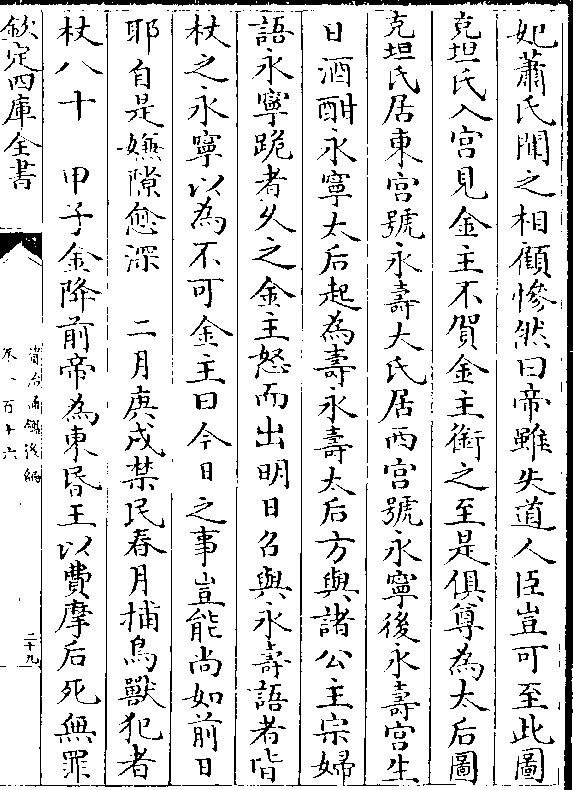 妃蕭氏聞之相顧慘然曰帝雖失道人臣豈可至此圖
克坦氏入宫見金主不賀金主銜之至是俱尊為太后圖
克坦氏居東宫號永壽大氏居西宫號永寧後永壽宫生
日酒酣永寧太后起為壽永壽太后方與諸公主宗婦
語永寧跪者久之金主怒而出明日召與永壽語者皆
杖之永寧以為不可金主曰今日之事豈能尚如前日
耶自是嫌隙愈深　二月庚戌禁民春月捕鳥獸犯者
杖八十　甲子金降前帝為東昬王以費摩后死無罪
欽定四庫全書
資治通鑑後編
卷一百十六
二十九